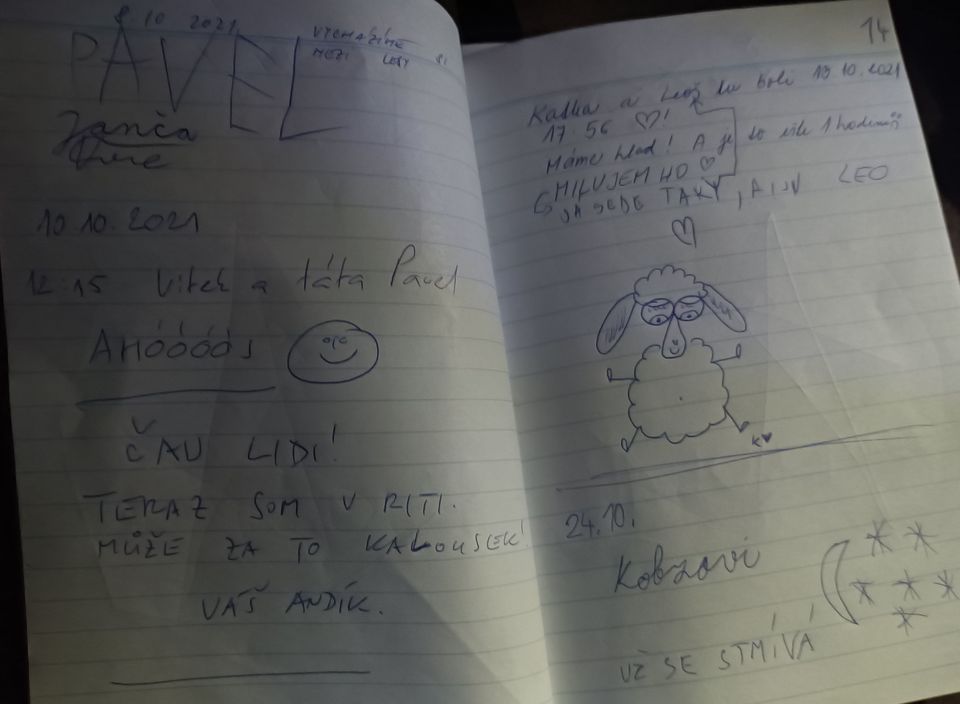 8.10 2021
PAVEL
MEZI
Janča
10.10.2021
12:15 Vítek a táta Pavel
AHÓÓÓÓJ
ČAU LIDI!
TERAZ SOM V RITI.
MŮŽE ZA TO KALOUSEK!
VÁŠ ANDÍK.
14
Katka a Leoš tu byli 19.10.2021
17:56 ♡!
Máme hlad! A je to ještě 1 hodina
MILUJEM HO ♡
JA SEBE TAKY, A I LEO
24.10.
Kobzovi
UŽ SE STMÍVÁ